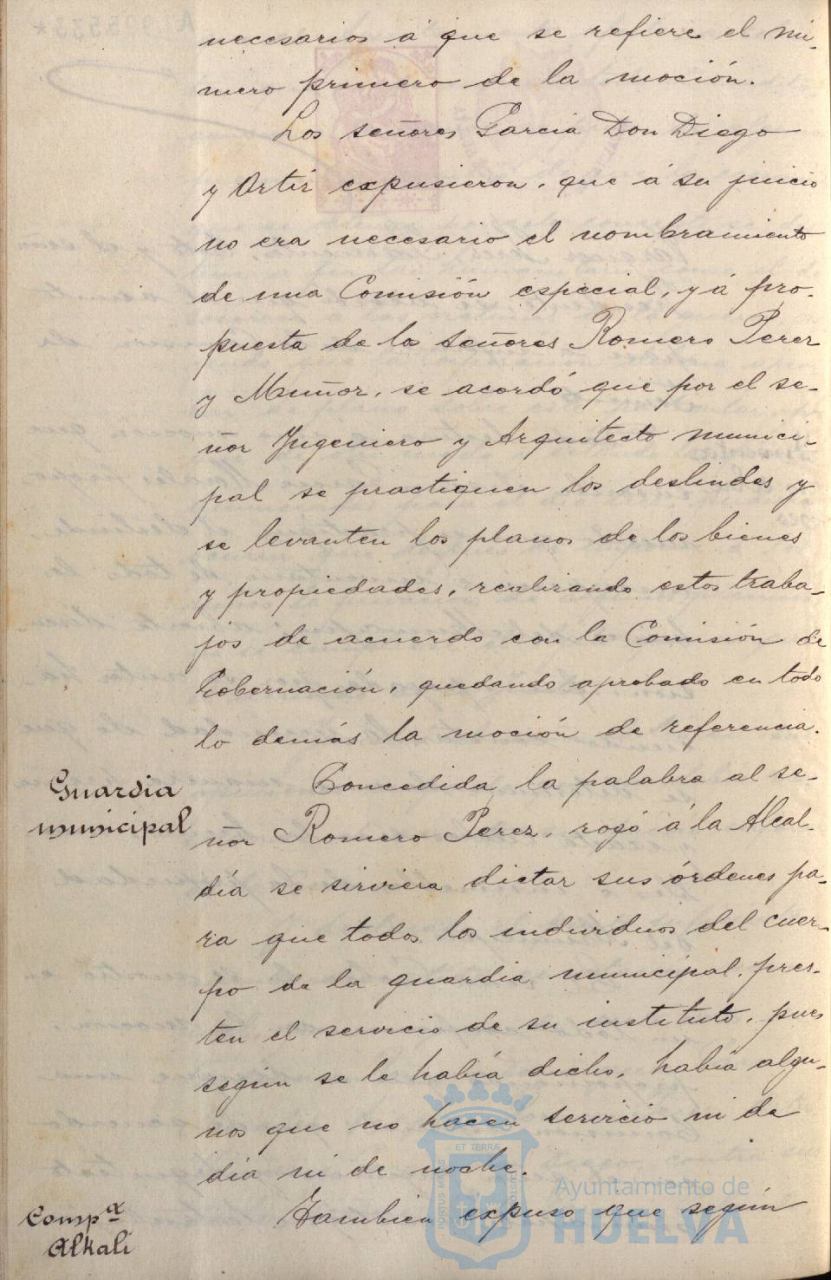 necesarios á que se refiere el nú-
mero primero de la moción.
Los señores Garcia Don Diego
y Ortiz expusieron, que á su juicio
no era necesario el nombramiento
de una Comisión especial, y á pro-
puesta de los señores Romero Perez
y Muñoz, se acordó que por el se-
ñor Yngeniero y Arquitecto munici-
pal se practiquen los deslindes y
se levanten los planos de los bienes
y propiedades, realizando estos traba-
jos de acuerdo con la Comisión de
Gobernación, quedando aprobado en todo
lo demás la moción de referencia.
Guardia
municipal
Concedida la palabra al se-
ñor Romero Perez, rogó á la Alcal-
día se sirviera dictar sus órdenes pa-
ra que todos los individuos del cuer-
po de la guardia municipal, pres-
ten el servicio de su instituto, pues
según se le había dicho, había algu-
nos que no hacen servicio ni de
día ni de noche.
Compª
Alkali
Tambien expuso que según
ET TERRÆ
PORTUS MARIS
Ayuntamiento de
HUELVA